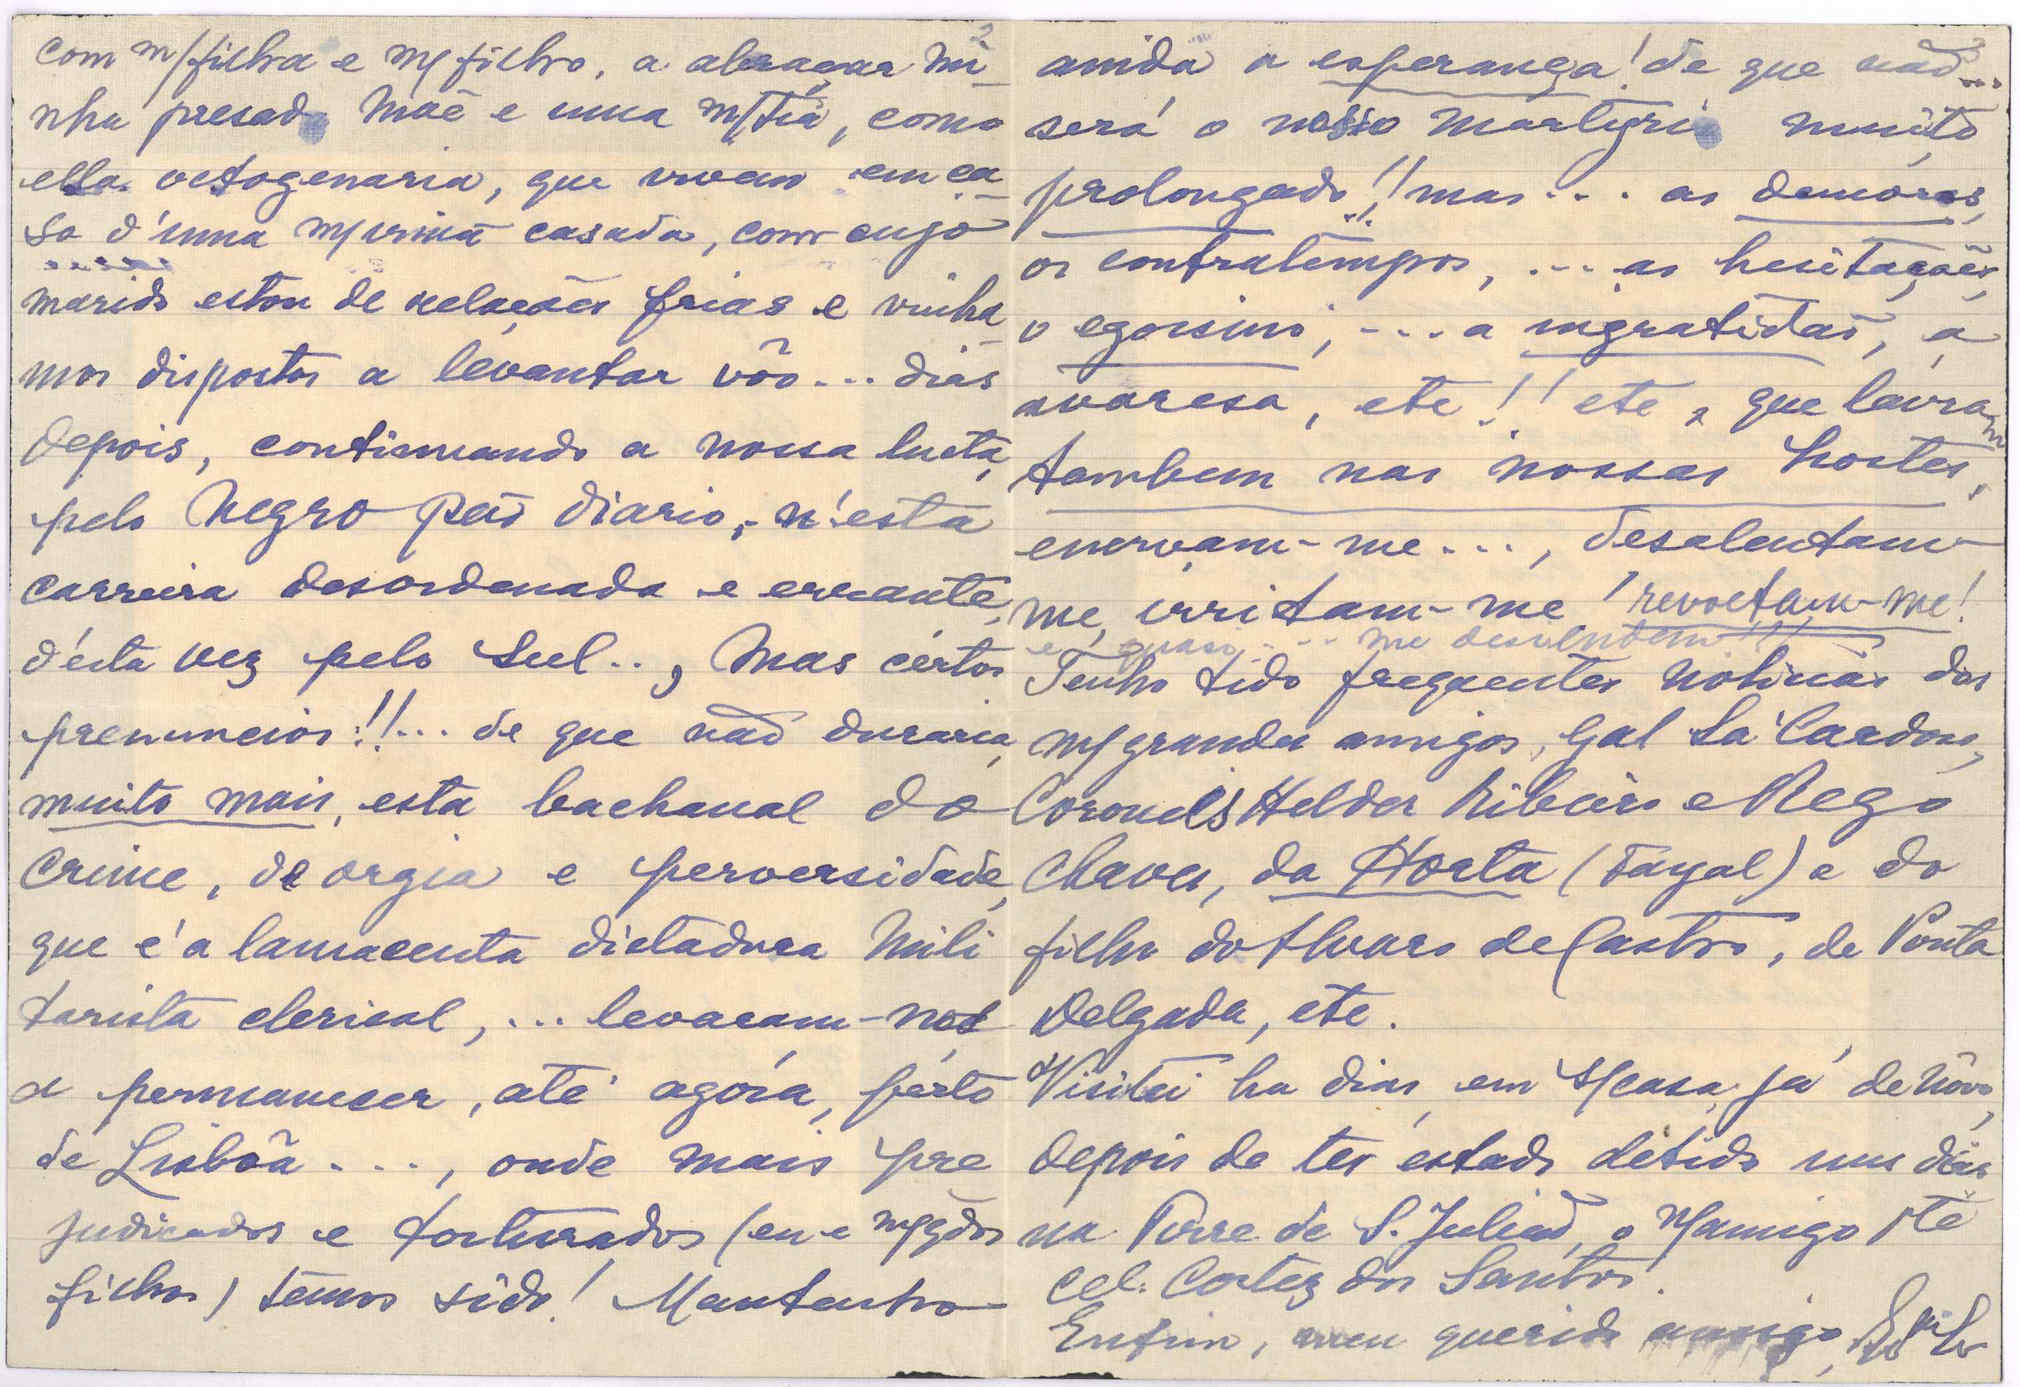 2
com m/filha e m/ filho, a abraçar mi-
nha presada Mãe e uma m/tia, como
ella octogenaria, que vivem em ca-
sa d'uma m/irmã casada, com cujo
marido estou de relações frias e vinha-
mos dispostos a levantar vôo... dias
depois, continuando a nossa lucta,
pelo negro pão diario, n'esta
carreira desordenada e errante,
d'ésta vez pelo Sul.., Mas cértos
prenuncios!!... de que não duraria,
muito mais, esta bachanal do
crime, de orgia e perversidade,
que é a lamacenta dictadura mili
tarista clerical, ... levaram-nos
a permanecer, até agóra, pérto
de Lisbôa ..., onde mais pre
judicados e torturados (eu e m/qdos
filhos) têmos sido! Mantenho
ainda a esperança! de que não...
será o nosso martyrio muito
prolongado!! mas... as demóras,
os contratempos, ... as hesitações,
o egoismo, ... a ingratidão, a
avaresa, etc!! etc, que lavram
tambem nas nossas hostes,
enervam-me..., desalentam-
me, irritam-me! revoltam-me!
e quasi ... me desalentam!!!
Tenho tido freqaentes noticias dos
m/grandes amigos, Gal Sá Cardoso,
Coroneis Helder Ribeiro e Rego
Chaves, da Horta (Fayal) e do
filho do Alvaro de Castro, de Ponta
Delgada, etc.
Visitei ha dias, em s/casa, já de nôvo,
depois de ter estado detido uns dias
na Torre de S. Julião, o m/amigo Te
cel. Cortez dos Santos.
Enfim, meu querido amigo,